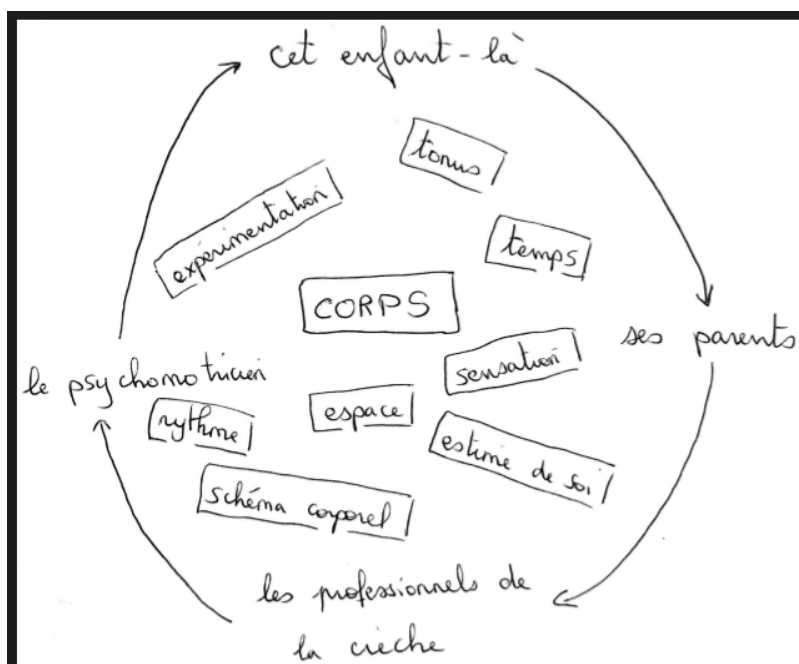 cet enfant-là
tonus
expérimentation
temps
CORPS
ses parents
sensation
le psychomotricien
espace
rythme
estime de soi
schéma corporel
les professionnels de
la crèche